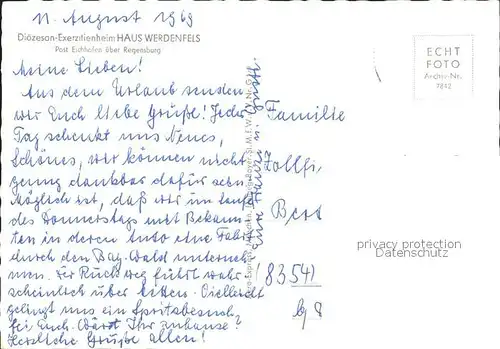 11. August 1969
Diözesan-Exerzitienheim HAUS WERDENFELS
Post Eichhofen über Regensburg
ECHT
FOTO
Archiv-Nr.
7812
Meine Lieben!
Aus dem Urlaub senden
wir Euch liebe Grüße! Jeder
Tag schenkt uns Neues,
Schönes, wir können nicht
genug dankbar dafür sein
Möglich ist, daß wir im Laufe
des Donnerstags mit Bekann-
ten in deren Auto eine Fahrt
durch den Bay. Wald unterneh-
men. Der Rückweg führt wahr-
scheinlich über Vielleicht
gelingt uns ein Spritzbesuch
bei Euch. Wärst Ihr zuhause?
Herzliche Grüße allen!
Eure u. Gustl.
Familie
Bert
(8354)
privacy protection
Datenschutz